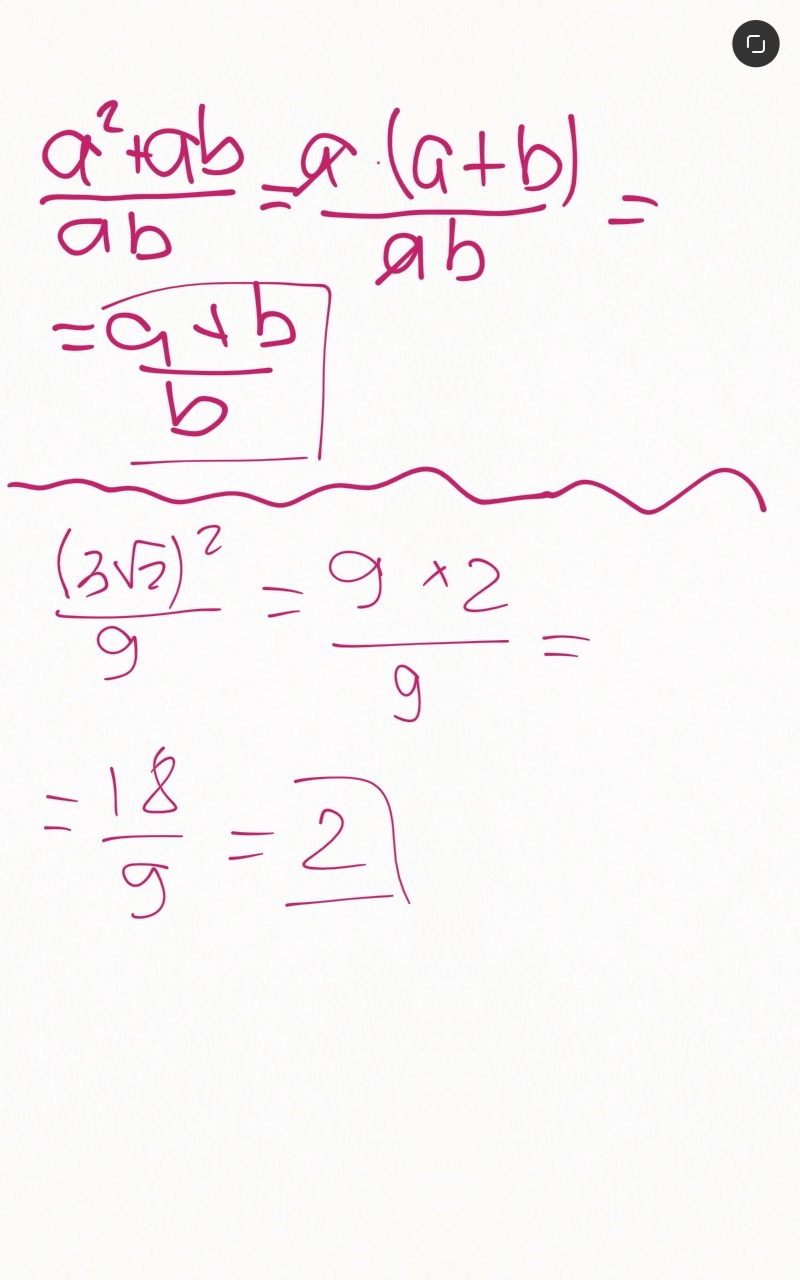 (a²+ab)/(ab) = (a·(a+b))/(ab) =
= (a+b)/b
(3√2)²/9 = (9×2)/9 =
= 18/9 = 2